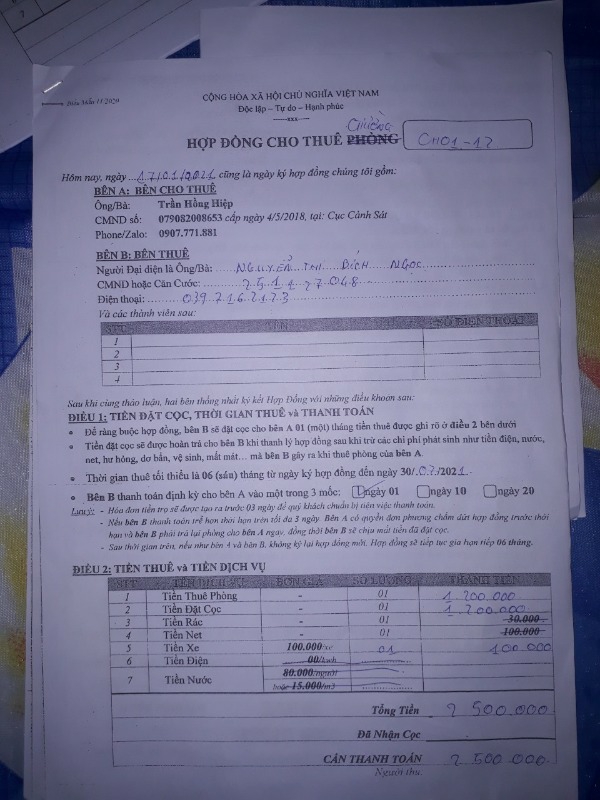 Biểu Mẫu 11/2020
CỘNG HÒA XÃ HỘI CHỦ NGHĨA VIỆT NAM
Độc lập – Tự do – Hạnh phúc
---xxx---
HỢP ĐỒNG CHO THUÊ PHÒNG CH01-17
Hôm nay, ngày 17/01/2021 cũng là ngày ký hợp đồng chúng tôi gồm:
BÊN A: BÊN CHO THUÊ
Ông/Bà: Trần Hồng Hiệp
CMND số: 079082008653 cấp ngày 4/5/2018, tại: Cục Cảnh Sát
Phone/Zalo: 0907.771.881
BÊN B: BÊN THUÊ
Người Đại diện là Ông/Bà: NGUYỄN THỊ BÍCH NGỌC
CMND hoặc Căn Cước:
Điện thoại: 039.216.2123
Và các thành viên sau:
STT TÊN SỐ ĐIỆN THOẠI
1
2
3
4
Sau khi cùng thảo luận, hai bên thống nhất ký kết Hợp Đồng với những điều khoản sau:
ĐIỀU 1: TIỀN ĐẶT CỌC, THỜI GIAN THUÊ và THANH TOÁN
• Để ràng buộc hợp đồng, bên B sẽ đặt cọc cho bên A 01 (một) tháng tiền thuê được ghi rõ ở điều 2 bên dưới
• Tiền đặt cọc sẽ được hoàn trả cho bên B khi thanh lý hợp đồng sau khi trừ các chi phí phát sinh như tiền điện, nước,
net, hư hỏng, dơ bẩn, vệ sinh, mất mát… mà bên B gây ra khi thuê phòng của bên A.
• Thời gian thuê tối thiểu là 06 (sáu) tháng từ ngày ký hợp đồng đến ngày 30/07/2021
• Bên B thanh toán định kỳ cho bên A vào một trong 3 mốc: ngày 01 ngày 10 ngày 20
Lưu ý: - Hóa đơn tiền trọ sẽ được tạo ra trước 03 ngày để quý khách chuẩn bị tiền việc thanh toán.
- Nếu bên B thanh toán trễ hơn thời hạn trên tối đa 3 ngày. Bên A có quyền đơn phương chấm dứt hợp đồng trước thời
hạn và bên B phải trả lại phòng cho bên A ngay, đồng thời bên B sẽ chịu mất tiền đã đặt cọc.
- Sau thời gian trên, nếu như bên A và bên B, không ký lại hợp đồng mới. Hợp đồng sẽ tiếp tục gia hạn tiếp 06 tháng.
ĐIỀU 2: TIỀN THUÊ và TIỀN DỊCH VỤ
STT TÊN DỊCH VỤ ĐƠN GIÁ SỐ LƯỢNG THÀNH TIỀN
1 Tiền Thuê Phòng - 01 1.200.000
2 Tiền Đặt Cọc - 01 1.200.000
3 Tiền Rác - 01 30.000
4 Tiền Net - 01 100.000
5 Tiền Xe 100.000/xe 01 100.000
6 Tiền Điện 00/kwh
7 Tiền Nước 80.000/người
hoặc 15.000/m3
Tổng Tiền 2 500.000
Đã Nhận Cọc
CẦN THANH TOÁN 2 500 000
Người thu.